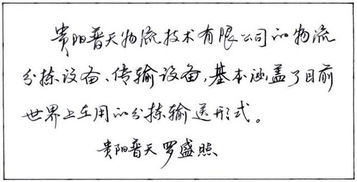 贵阳普天物流技术有限公司的物流
分拣设备、传输设备,基本涵盖了目前
世界上应用的分拣输送形式。
贵阳普天 罗盛照